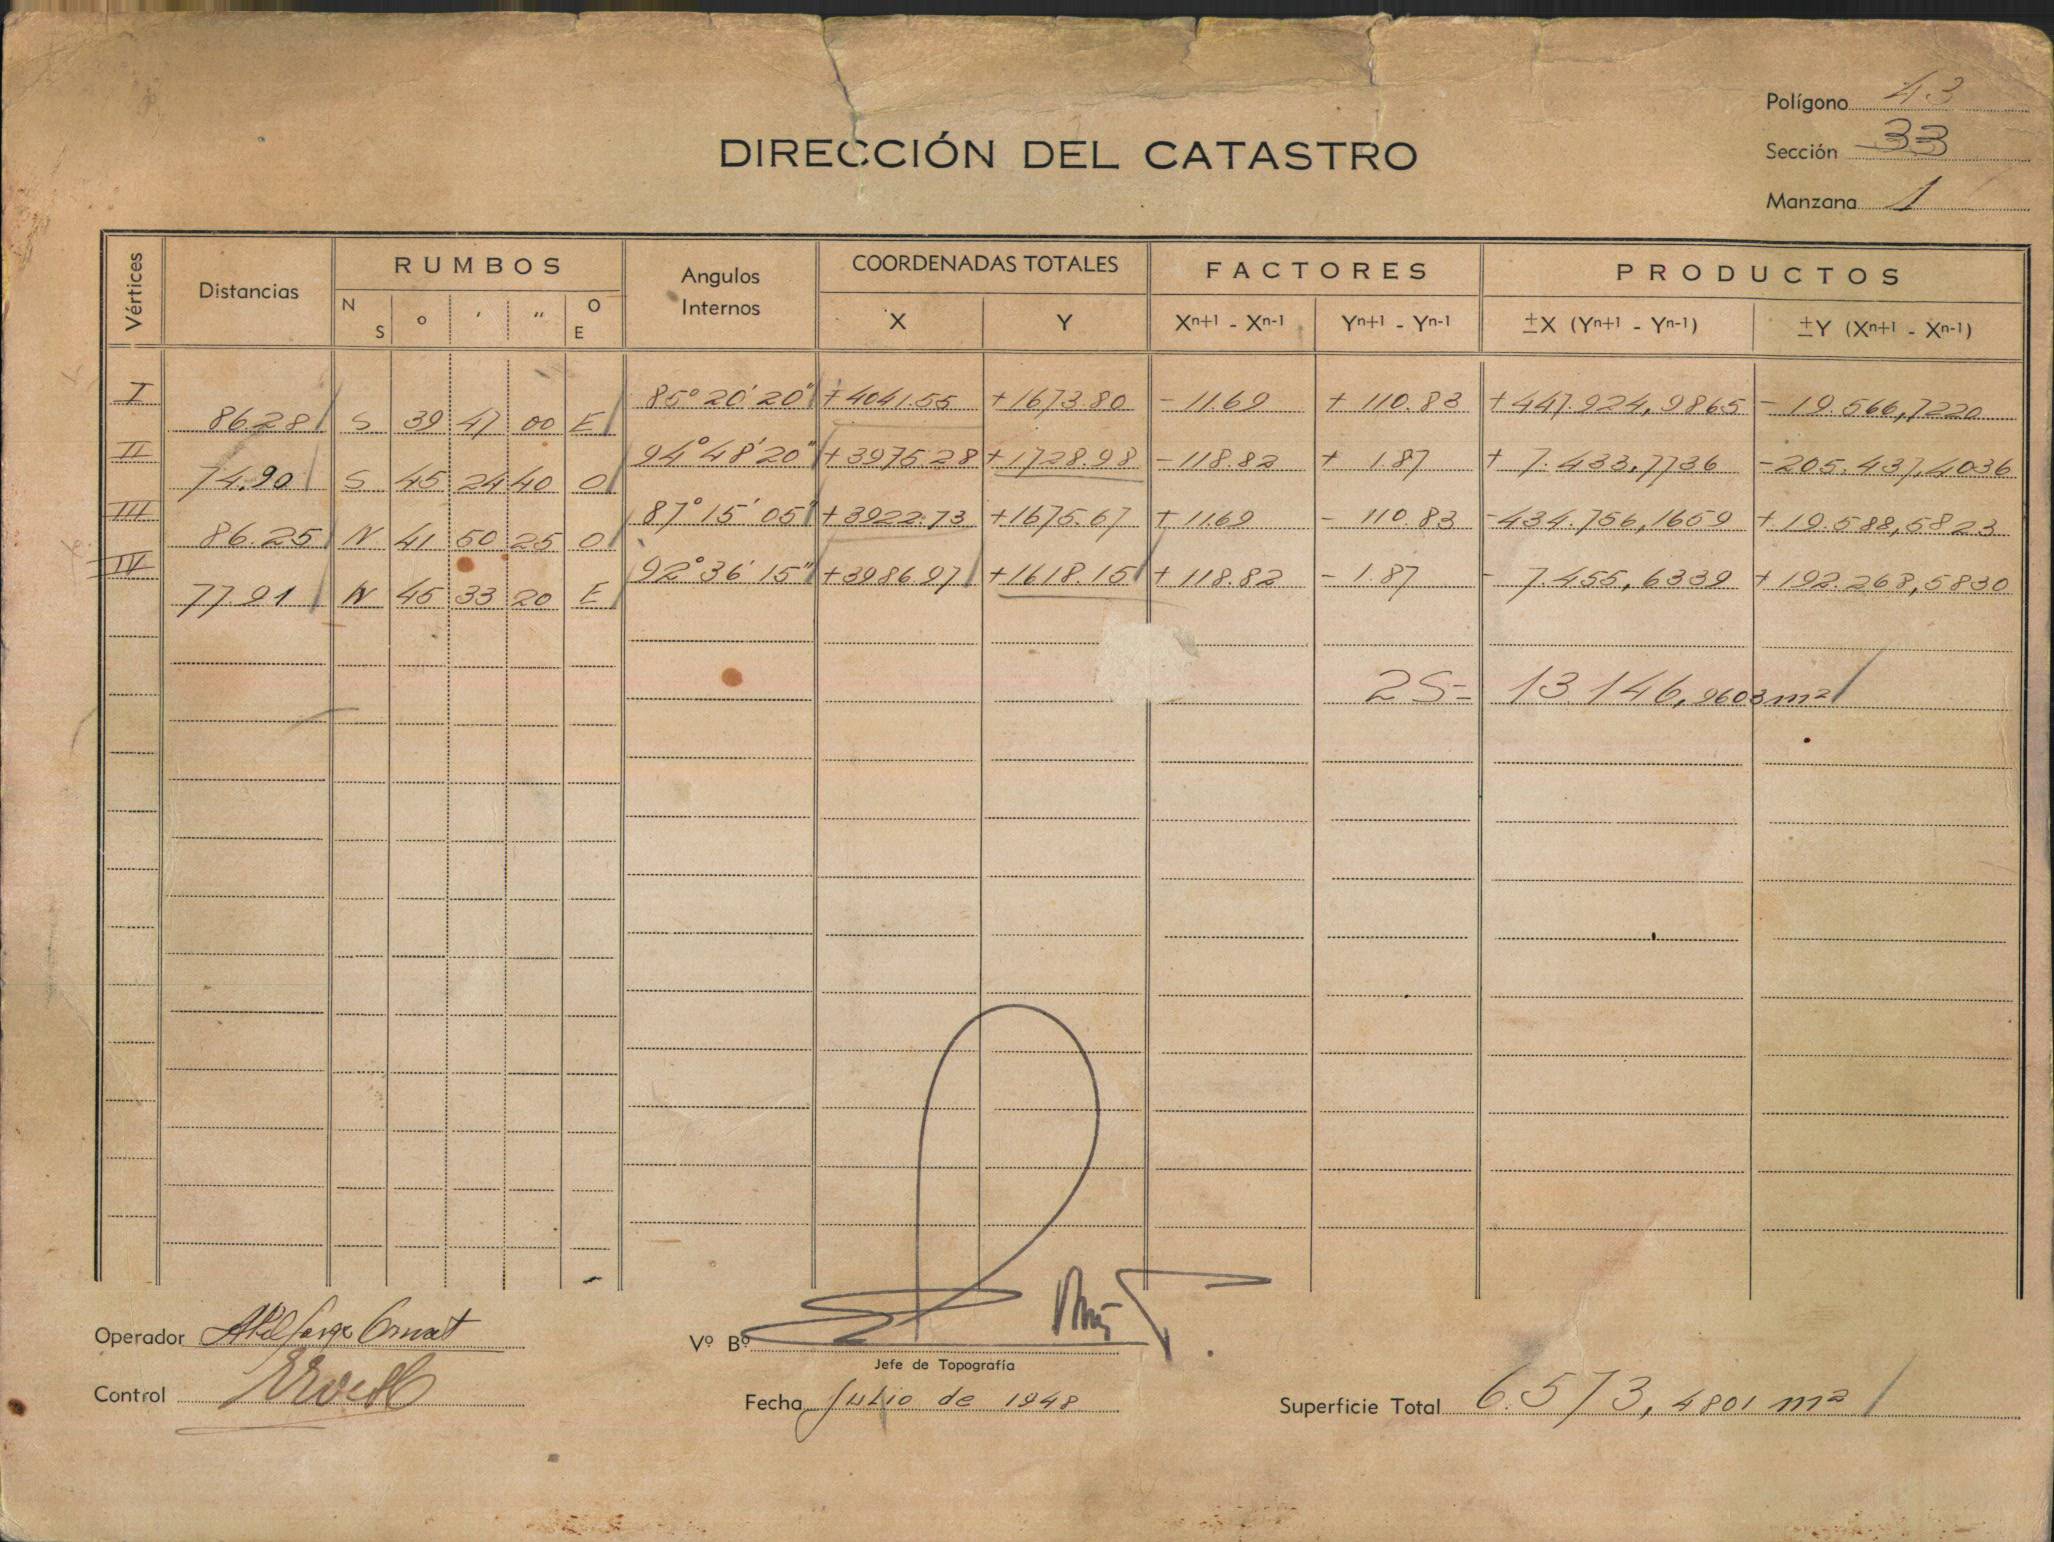 Polígono 43
DIRECCIÓN DEL CATASTRO
Sección 33
Manzana 1
Vértices Distancias RUMBOS Angulos Internos COORDENADAS TOTALES FACTORES PRODUCTOS
N S o ' " O E X Y Xn+1 - Xn-1 Yn+1 - Yn-1 ±X (Yn+1 - Yn-1) ±Y (Xn+1 - Xn-1)
I 85° 20' 20" +4041.55 +1673.80 - 11.69 + 110.83 +447.924,9865 - 19.566,7220
86.28 S 39 47 00 E
II 94° 48' 20" +3975.28 +1728.98 -118.82 + 1.87 + 7.433,7736 -205.437,4036
74.90 S 45 24 40 O
III 87° 15' 05" +3922.73 +1675.67 + 11.69 - 110.83 -434.756,1659 + 19.588,5823
86.25 N 41 50 25 O
IV 92° 36' 15" +3986.97 +1618.15 + 118.82 - 1.87 - 7.455,6339 + 192.268,5830
77.91 N 45 33 20 E
2S= 13.146,9603 m2
Operador
Vº Bº
Jefe de Topografía
Control
Fecha Julio de 1948
Superficie Total 6.573,4801 m2